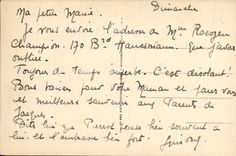 Dimanche
Ma petite Mamie.
Je vous envoie l'adresse de Mme
Champion. 170 Bd Haussmann. Que j'avais
oubliée.
Toujours du temps superbe. C'est désolant!
Bons baisers pour votre Maman et pour vous
et meilleurs souvenirs aux Parents de
Jacques.
Dites lui que Pierrot pense bien souvent à
lui. et l'embrasse bien fort.